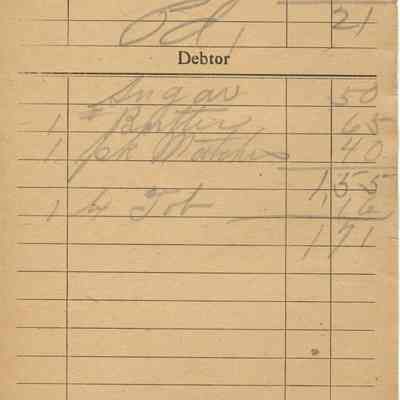 21
Pd
Debtor
Sugar 50
1 # Butter 65
1 pk Matches 40
1 55
1 Tob 16
1 71